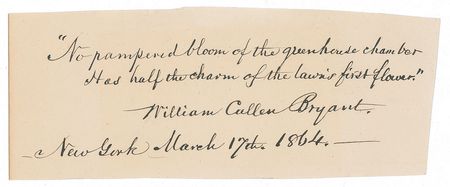 "No pampered bloom of the greenhouse chamber
Has half the charm of the lawn's first flower."
William Cullen Bryant.
—New York March 17th. 1864.—